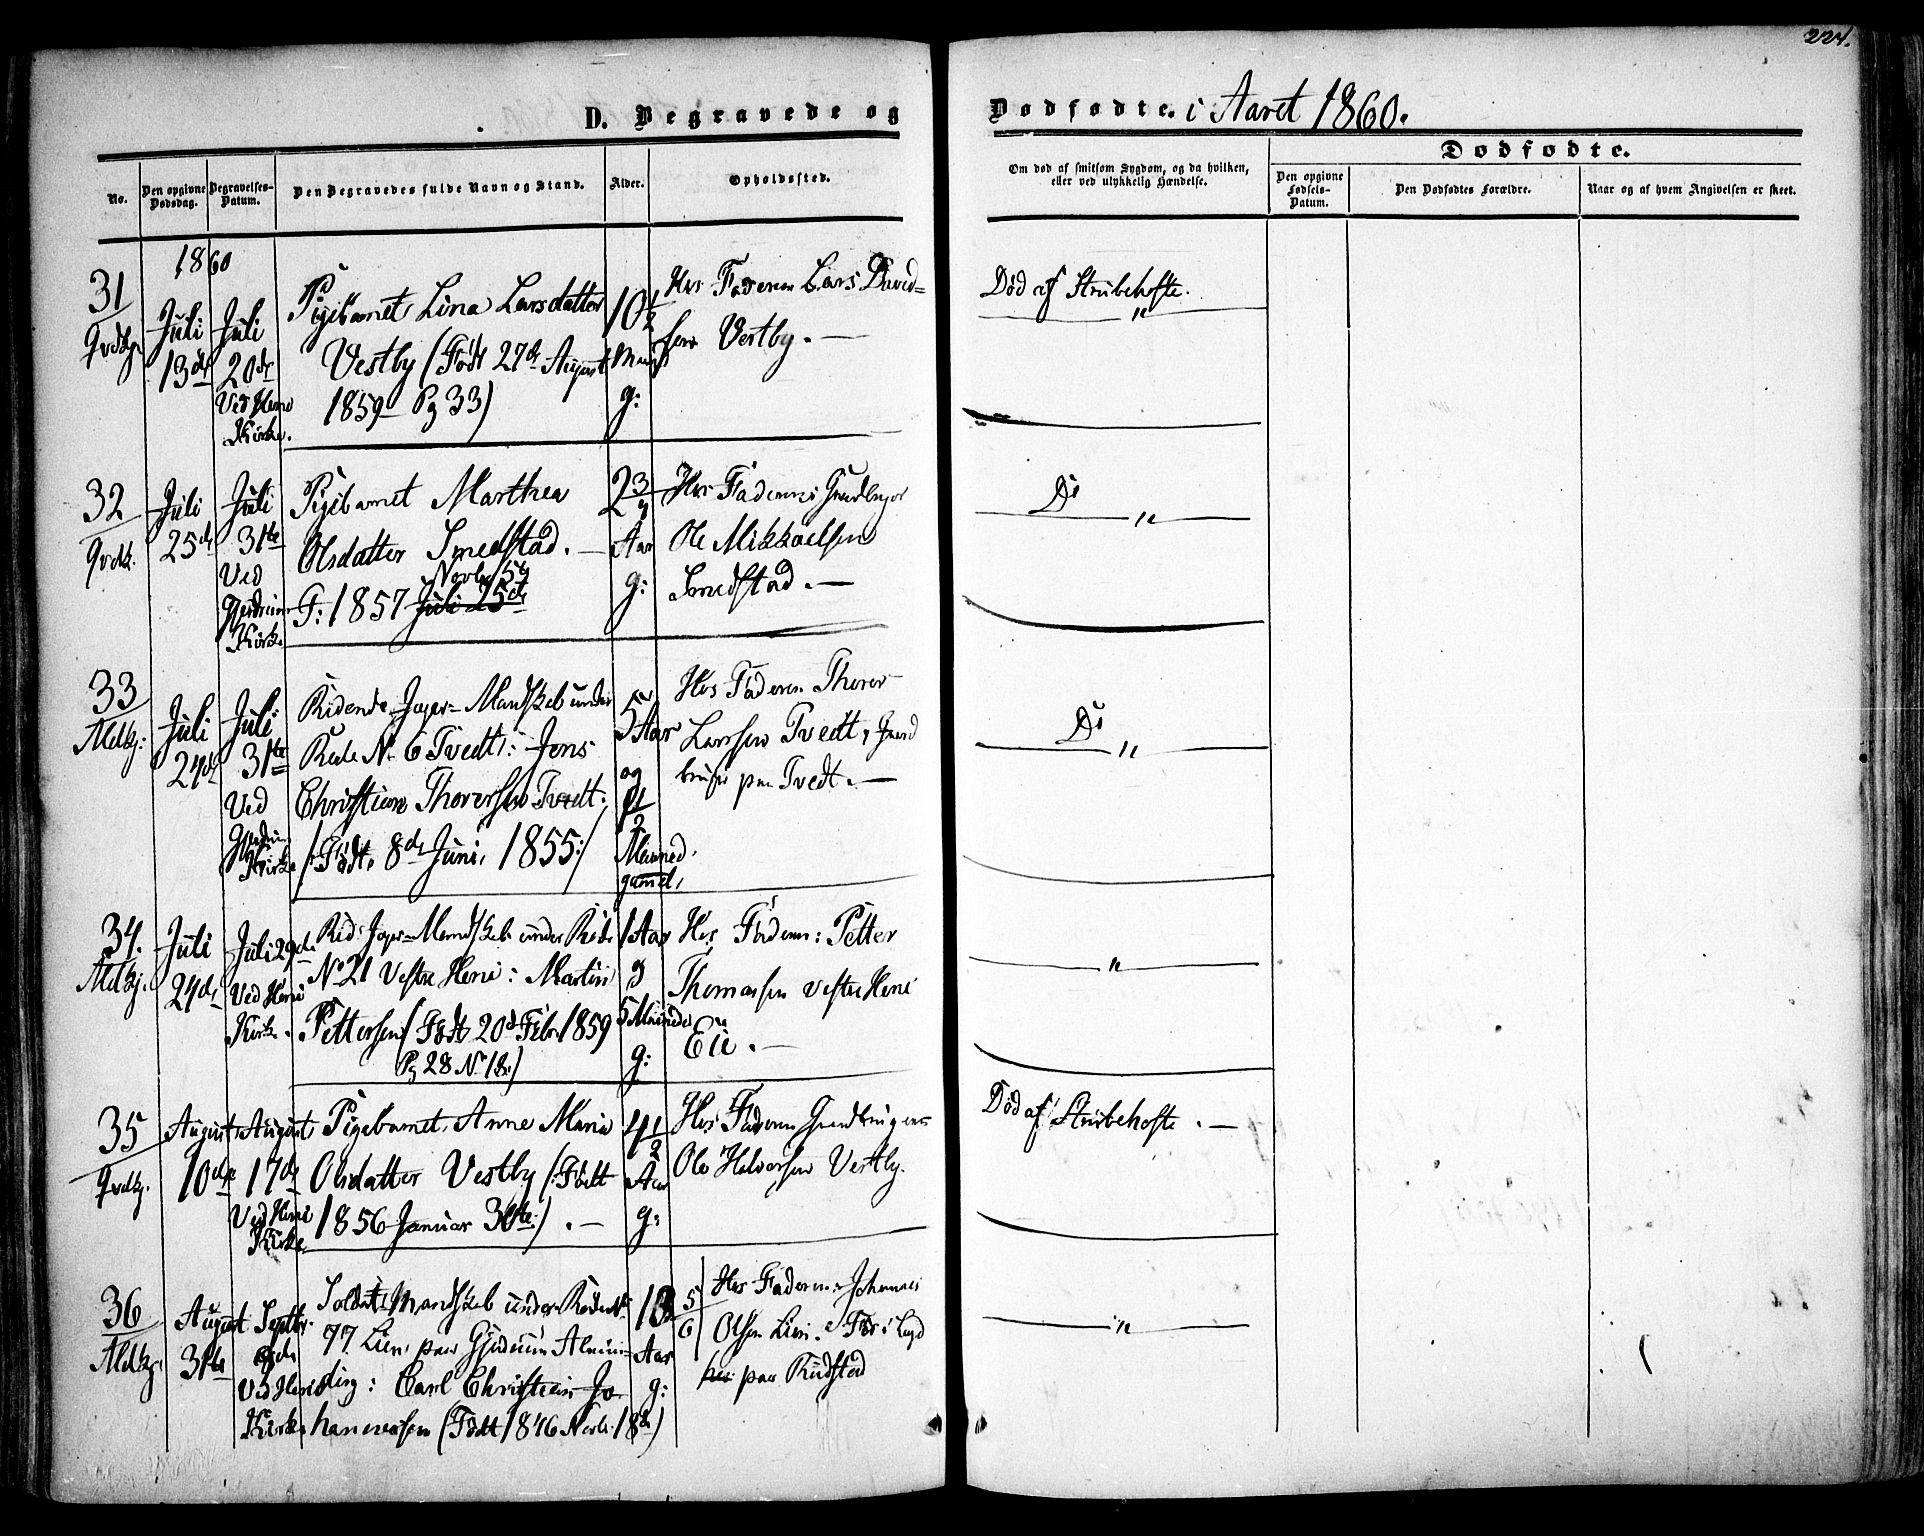 224.
D. Begravede og Dødfødte. i Aaret 1860.
No.
Den opgivne Dødsdag.
Begravelses-Datum.
Den Begravedes fulde Navn og Stand.
Alder.
Opholdssted.
Om død af smitsom Sygdom, og da hvilken, eller ved ulykkelig Hændelse.
Dødfødte.
Den opgivne Fødsels-Datum.
Den Dødfødtes Forældre.
Naar og af hvem Angivelsen er skeet.
1860
31
Juli
13de
Juli
20de
Ved Heni
Kirke.
Pigebarnet Lina Larsdatter
Vestby (Født 27de August
1859 Pg 33)
10 1/2
g:
Hos Faderen Lars David=
sen Vestby. —
Død af Strubehoste.
32
Juli
25de
Juli
31te
Ved
Gjerdrum
Kirke
Pigebarnet Marthea
Olsdatter Smedstad. —
F: 1857 Juli 25de
2 3/4
Aar
g:
Hos Faderen Gaardbruger
Ole Mikkaelsen
Smedstad. —
Do
33
Juli
24de
Juli
31te
Ved
Gjerdrum
Kirke
Ridende Jæger-Mandskab under
Rode No 6 Tvedt: Jens
Christian Thorersen Tvedt.
/: Født 8de Juni 1855:/
5 Aar
og
1 1/2
Maaned
gamel,
Hos Faderen Thorer
Larssen Tvedt, Gaard
bruger paa Tvedt. —
Do
34.
Juli
24de
Juli 29de
Ved Heni
Kirke.
Rid: Jæger-Mandskab under Rode
No 21 Vestre Heni: Martin
Pettersen (Født 20de Febr. 1859
Pg 28 No 18.)
1 Aar
5 Maaneder
g:
Hos Faderen: Petter
Thomassen Vestre Heni
Eie. —
35
August
10de
August
17de
Ved Heni
Kirke
Pigebarnet Anne Maria
Olsdatter Vestby (: Født
1856 Januar :) . —
4 1/2
Aar
g:
Hos Faderen Gaardbruger
Ole Halvorsen Vestby.
Død af Strubehoste. —
36
August
31te
Septbr.
Ved Heni
Kirke
Soldat Mandskab under Rode No
77 Lien paa Gjerdrum Almin=
ding: Carl Christian Jo
hannessen (Født 1846 Novbr. 18de)
13 5/6
Aar
g:
Hos Faderen Johannes
Olsen Lien. Før i Lægd
hos paa Rudstad